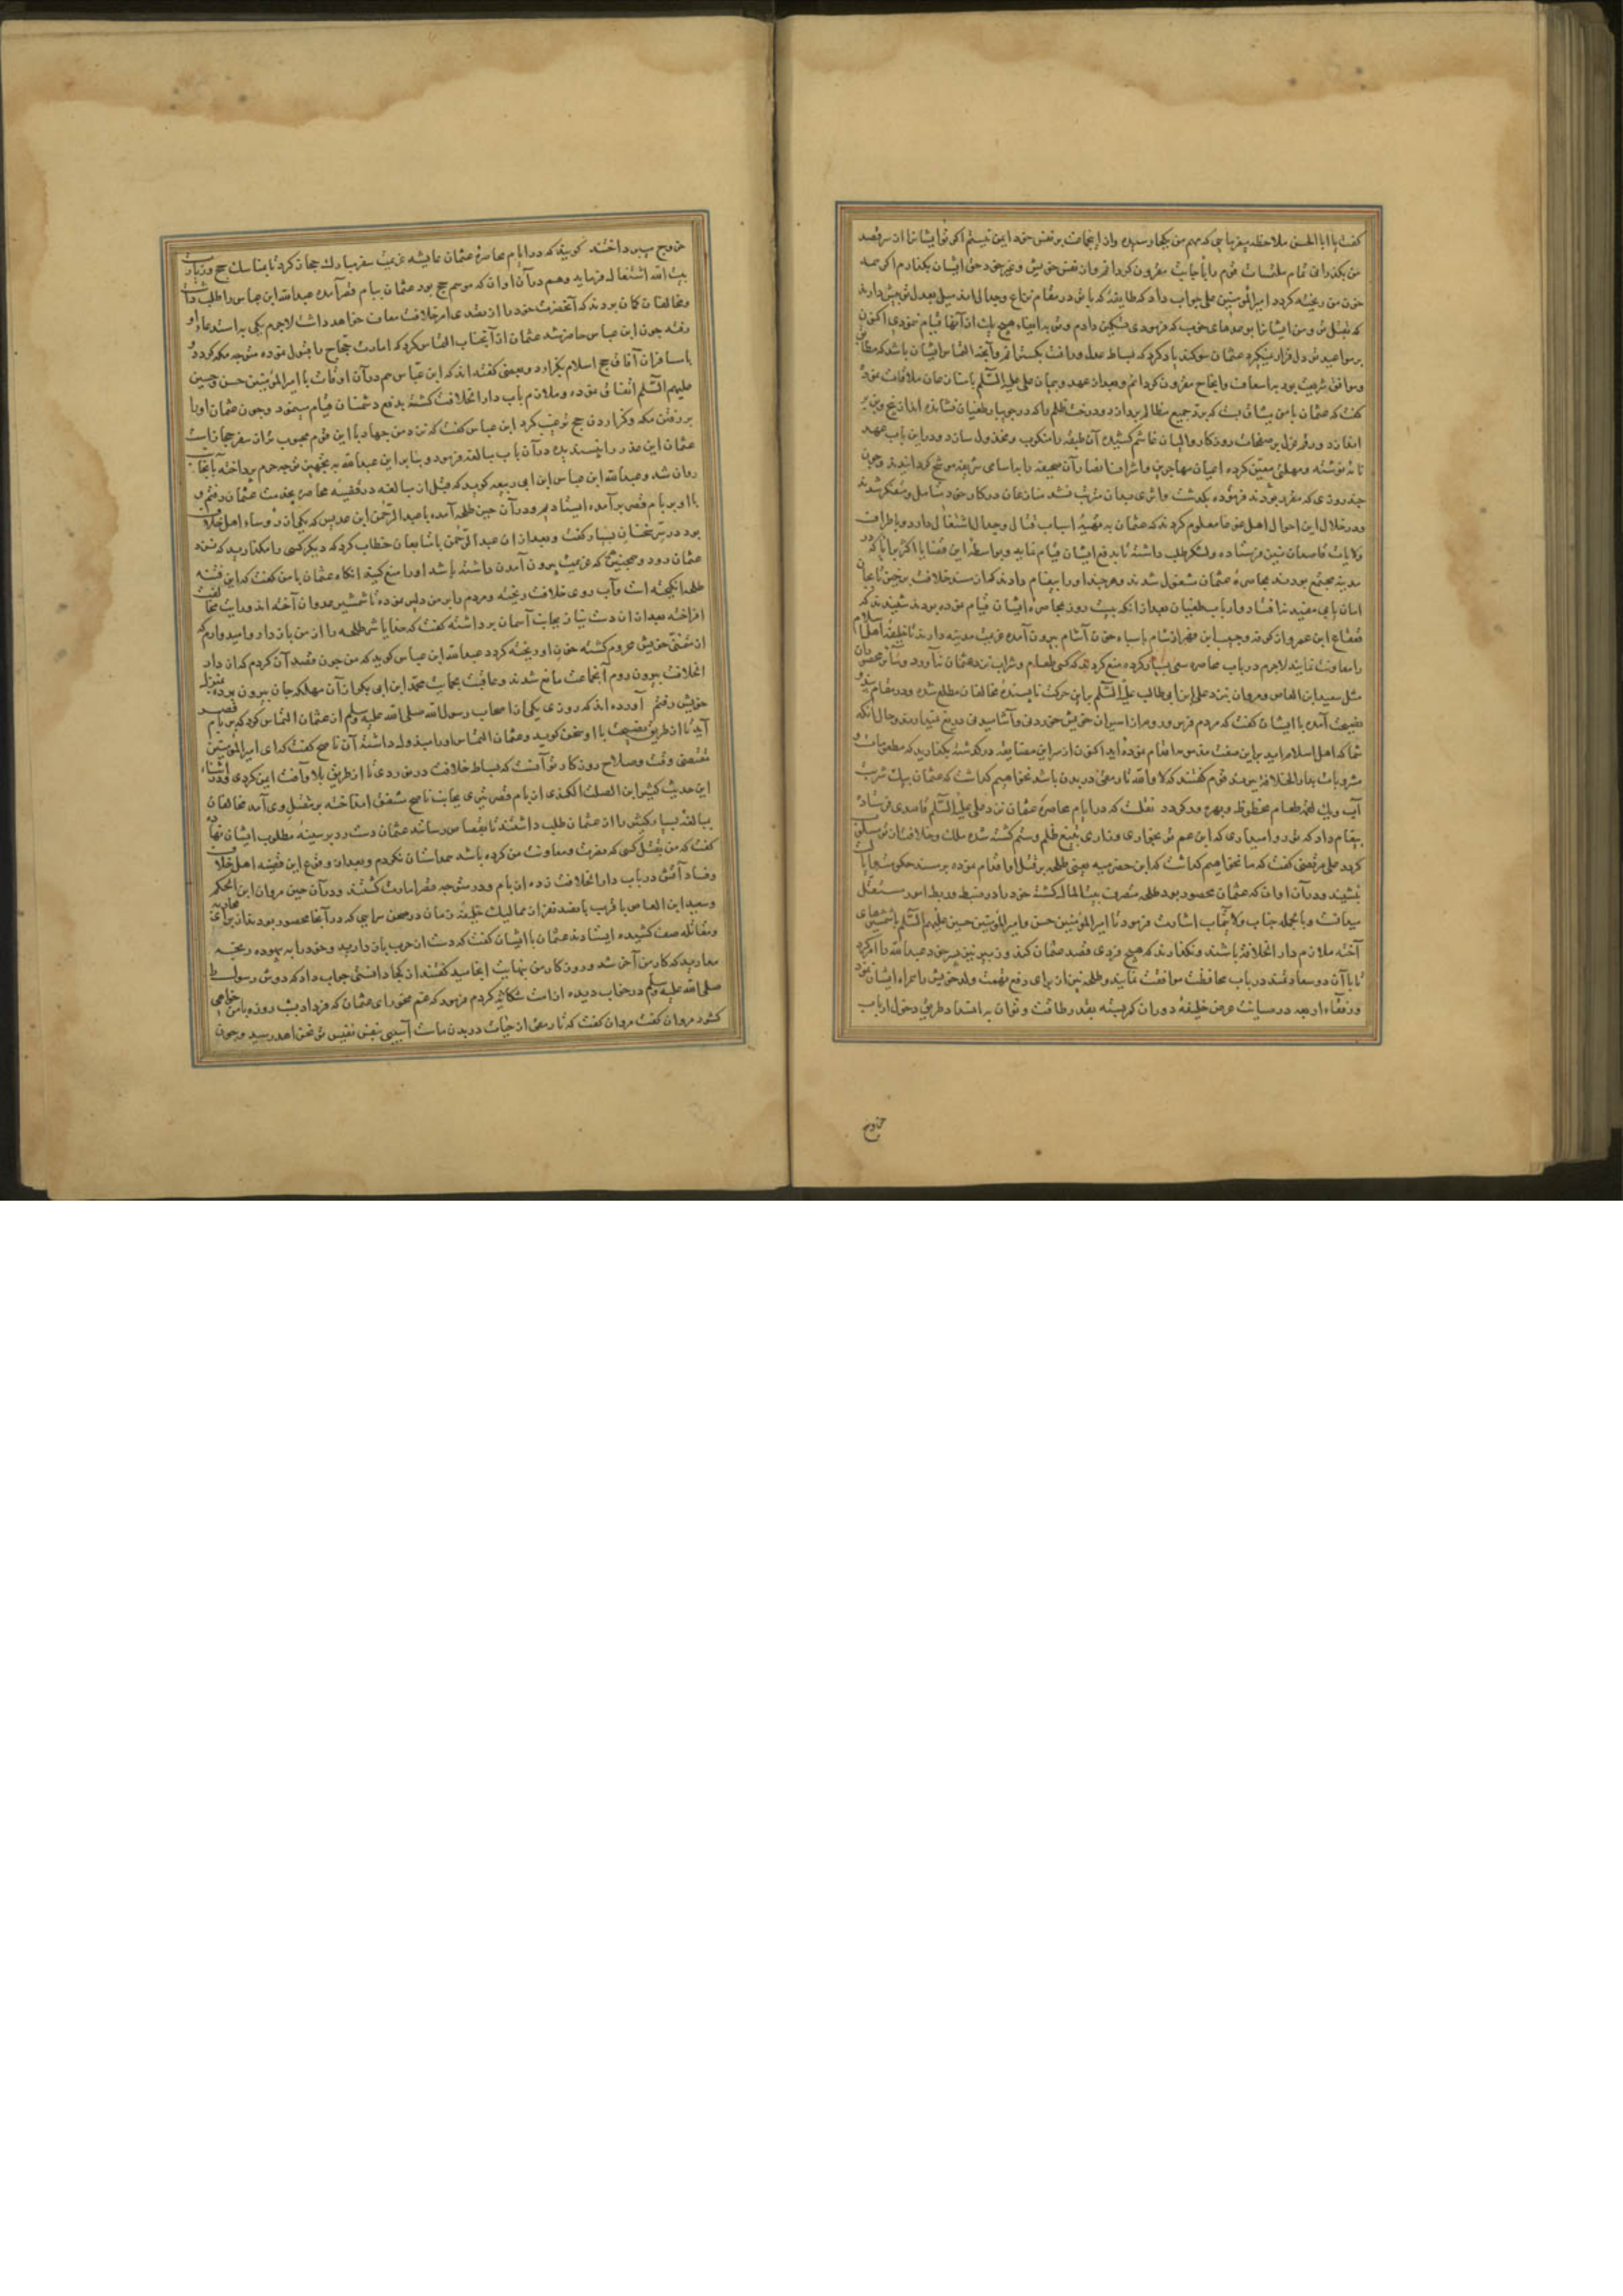 کفت یا ابا الحسن ملاحظه میفرمایی که مهم من بکجا رسیده واز اینجماعت بر نفس خود ایمن نیستم اکر تو ایشانرا از سر قصد
من بکذرانی تمام ملتمسات قوم را باجابت مقرون کردانم واز نفس خویش وغیر خود حق ایشان بکذارم اکر چه
خون من ریخته کردد امیر المؤمنین علی جواب داد که طایفه که با تو در مقام نزاع وجدال اند میل بعدل تو بیش دارند
که بقتل تو ومن ایشانرا بوعدهای خوب که فرمودی تسکین دادم وتو به ایفاء هیچ یک از آنها قیام ننمودی اکنون
بر مواعید تو دل قرار نمیکیرد عثمان سوکند یاد کرد که بساط عدل ورافت بکسترانم وآنچه التماس ایشان باشد که مطابق
وموافق شریعت بود به اسعاف وانجاح مقرون کردانم وبعد از عهد وپیمان علی علیه السلم با منازعان ملاقات نموده
کفت که عثمان با من پیمان بست که برد جمیع مظالم پردازد ودرخت ظلم را که در جویبار طغیان نشانده اند از بیخ وبن بر
اندازد ورقم عزل بر صفحات روزکار والیان غاشم کشیده آن طبقه را منکوب ومخذول سازد ودر این باب عهد
نامه نوشته ومهلتی معین کرده اعیان مهاجرین واشراف انصار آن صحیفه را به اسامی شریفه موشح کردانیدند وچون
چند روزی که مقرر بودند فرموده بکذشت واثری بدان مترتب نشد منازعان در کار خود متامل ومتفکر شدند
ودر خلال این احوال اهل عناد معلوم کردند که عثمان به تهیه اسباب قتال وجدال اشتغال دارد وباطراف
ولایات قاصدان تیز فرستاده ولشکر طلب داشته تا بدفع ایشان قیام نماید وبواسطه این قضایا اکثر مردم که در
مدینه مجتمع بودند بمحاصره عثمان مشغول شدند وهر چند او را پیغام دادند که از مسند خلافت برخیز تا بجان
امان یابی مفید نیفتاد وارباب طغیان بعد از انکه بیست روز بمحاصره ایشان قیام نموده بودند شنیدند که
قعقاع ابن عمرو از کوفه وحبیب ابن از شام با سپاه خون آشام بیرون آمده عزیمت مدینه دارند تا خلیفه اهل اسلام
را معاونت نمایند لاجرم در باب محاصره سعی بسیار کرده منع کردند که کسی طعام وشراب نزد عثمان نیاورد
مثل سعید ابن العاص ومروان نزد علی ابن ابی طالب علیه السلم بر این حرکت ناپسندیده مخالفان مطلع شده ودر مقام پند و
نصیحت آمده با ایشان کفت که مردم فرس وروم از اسیران خویش خوردنی وآشامیدنی دریغ نمیدارند وحال انکه
شما که اهل اسلامید بر این صفت مذموم اقدام نموده اید اکنون از سر این مضایقه در کذشته بکذارید که مطعومات و
مشروبات بدار الخلافه برند قوم کفتند که لا والله تا رمقی در بدن باشد نخواهیم کذاشت که عثمان بیک شربت
آب ویک لقمه طعام محظوظ وبهره ور کردد نقلست که در ایام محاصره عثمان نزد علی علیه السلم قاصدی فرستاده
پیغام داد که تو روا میداری که ابن عم تو بخواری وزاری بتیغ ظلم وستم کشته شده ملک وخلافت از تو سلب
کردد علی مرتضی کفت که ما نخواهیم کذاشت که ابن حضرمیه یعنی طلحه بر قتل اقدام نموده بر مسند حکومت
بنشیند ودر آن اوان که عثمان محصور بود طلحه متصرف بیت المال کشته خود را در ضبط وربط امور مستقل
میدانست وبالجمله جناب ولایتمآب اشارت فرمود تا امیر المؤمنین حسن وامیر المؤمنین حسین علیهم السلم با شمشیرهای
آخته ملازم دار الخلافه باشند ونکذارند که هیچ فردی قصد عثمان کند وزبیر نیز پسر خود عبدالله را امر کرد
تا با آن دو سعادتمند در باب محافظت موافقت نمایند وطلحه نیز از برای رفع تهمت ولد خویش را همراه ایشان نمود
ورفقاء اربعه در صیانت عرض خلیفه دوران کوشیده بقدر طاقت وتوان به انسداد طریق دخول ارباب
خروج
خروج پرداختند کویند که در ایام محاصره عثمان عایشه عزیمت سفر مبارک حجاز کرد تا بمناسک حج وزیارت
بیت الله اشتغال فرماید وهم در آن اوان که موسم حج بود عثمان ببام قصر آمده عبدالله ابن عباس را طلب داشت
ومخالفان کمان بردند که آنحضرت خود را از تصدی امر خلافت معاف خواهد داشت لاجرم یکی به استدعاء او
رفته چون ابن عباس حاضر شد عثمان از آنجناب التماس کرد که امارت حجاج را قبول نموده متوجه مکه کردد و
با مسافران آفاق حج اسلام بکزارد وبعضی کفته اند که ابن عباس هم در آن اوقات با امیر المؤمنین حسن وحسین
علیهم السلم اتفاق نموده وملازم باب دار الخلافت کشته بدفع دشمنان قیام مینمود وچون عثمان او را
بر رفتن مکه وکزاردن حج ترغیب کرد ابن عباس کفت که نزد من جهاد با این قوم محبوب تر از سفر حجاز است
عثمان این عذر را نپسندیده در آن باب مبالغه فرمود وبنابر این عبدالله به تجهیز توجه حرم پرداخته بآنجانب
روان شد وعبدالله ابن عباس ابن ابی ربیعه کوید که قبل از مبالغه در قضیه محاصره بخدمت عثمان رفتم و
با او بر بام قصر بر آمده ایستادم ودر آن حین طلحه آمده با عبدالرحمن ابن عدیس که یکی از رؤساء اهل خلاف
بود در سر سخنان بسیار کفت وبعد از ان عبدالرحمن با متابعان خطاب کرد که دیکر کسی را مکذارید که نزد
عثمان رود وهمچنین کسی که عزیمت بیرون آمدن داشته باشد او را منع کنید انکاه عثمان با من کفت که این فتنه
طلحه انکیخته است وآب روی خلافت ریخته ومردم را بر من دلیر نموده تا شمشیر عدوان آخته اند ورایت مخالفت
افراخته بعد از ان دست نیاز بجانب آسمان برداشته کفت که خدایا شر طلحه را از من باز دار وامیدوارم که
از متمنی خویش محروم کشته خون او ریخته کردد عبدالله ابن عباس کوید که من چون قصد آن کردم که از دار
الخلافت بیرون روم آنجماعت مانع شدند وعاقبت بحمایت محمد ابن ابی بکر از آن مهلکه جان بیرون برده بمنزل
خویش رفتم آورده اند که روزی یکی از اصحاب رسول الله صلی الله علیه وسلم از عثمان التماس کرد که بر بام قصر
آید تا از طریق نصیحت با او سخن کوید وعثمان التماس او را مبذول داشته آن ناصح کفت که ای امیر المؤمنین
مقتضی وقت وصلاح روزکار تو آنست که بساط خلافت در نوردی تا از طریق بلا وآفت ایمن کردی ودر اثناء
این حدیث کثیر ابن الصلت الکندی از بام قصر تیری بجانب ناصح مشفق انداخته بر مقتل وی آمد مخالفان
مبالغه بسیار کثیر را از عثمان طلب داشتند تا بقصاص رسانند عثمان دست رد بر سینه مطلوب ایشان نهاده
کفت که من بقتل کسی که نصرت ومعاونت من کرده باشد همداستان نکردم وبعد از وقوع این قضیه اهل خلاف
وفساد آتش در باب دار الخلافت زده از بام ودر متوجه قصر امارت کشتند ودر آن حین مروان ابن الحکم
وسعید ابن العاص با قریب پانصد نفر از ممالیک خلیفه زمان در صحن سرایی که در آنجا محصور بود بقدر برای محاربه
ومقاتله صف کشیده ایستادند عثمان با ایشان کفت که دست از حرب باز دارید وخود را به بیهوده رنجه
مدارید که کار من آخر شد وروزکار من بنهایت انجامید کفتند از کجا دانستی جواب داد که دوش رسول
صلی الله علیه وسلم در خواب دیده از امت شکایت کردم فرمود که غم مخور ای عثمان که فردا شب روزه با من خواهی
کشود مروان کفت مروان کفت که تا رمقی از حیات در بدن ماست آسیبی بنفس نفیس تو نخواهد رسید وچون